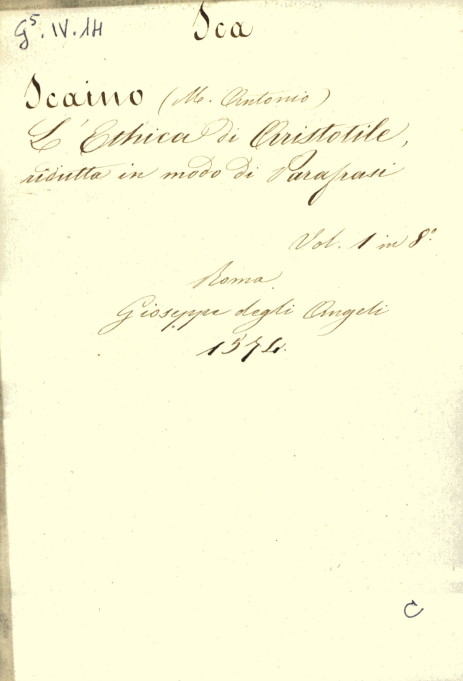 G⁵. IV. 14
Sca
Scaino (M. Antonio)
L'Ethica di Aristotile,
ridutta in modo di Parafrasi
Vol. 1 in 8.°
Roma
Gioseppe degli Angeli
1574.
C